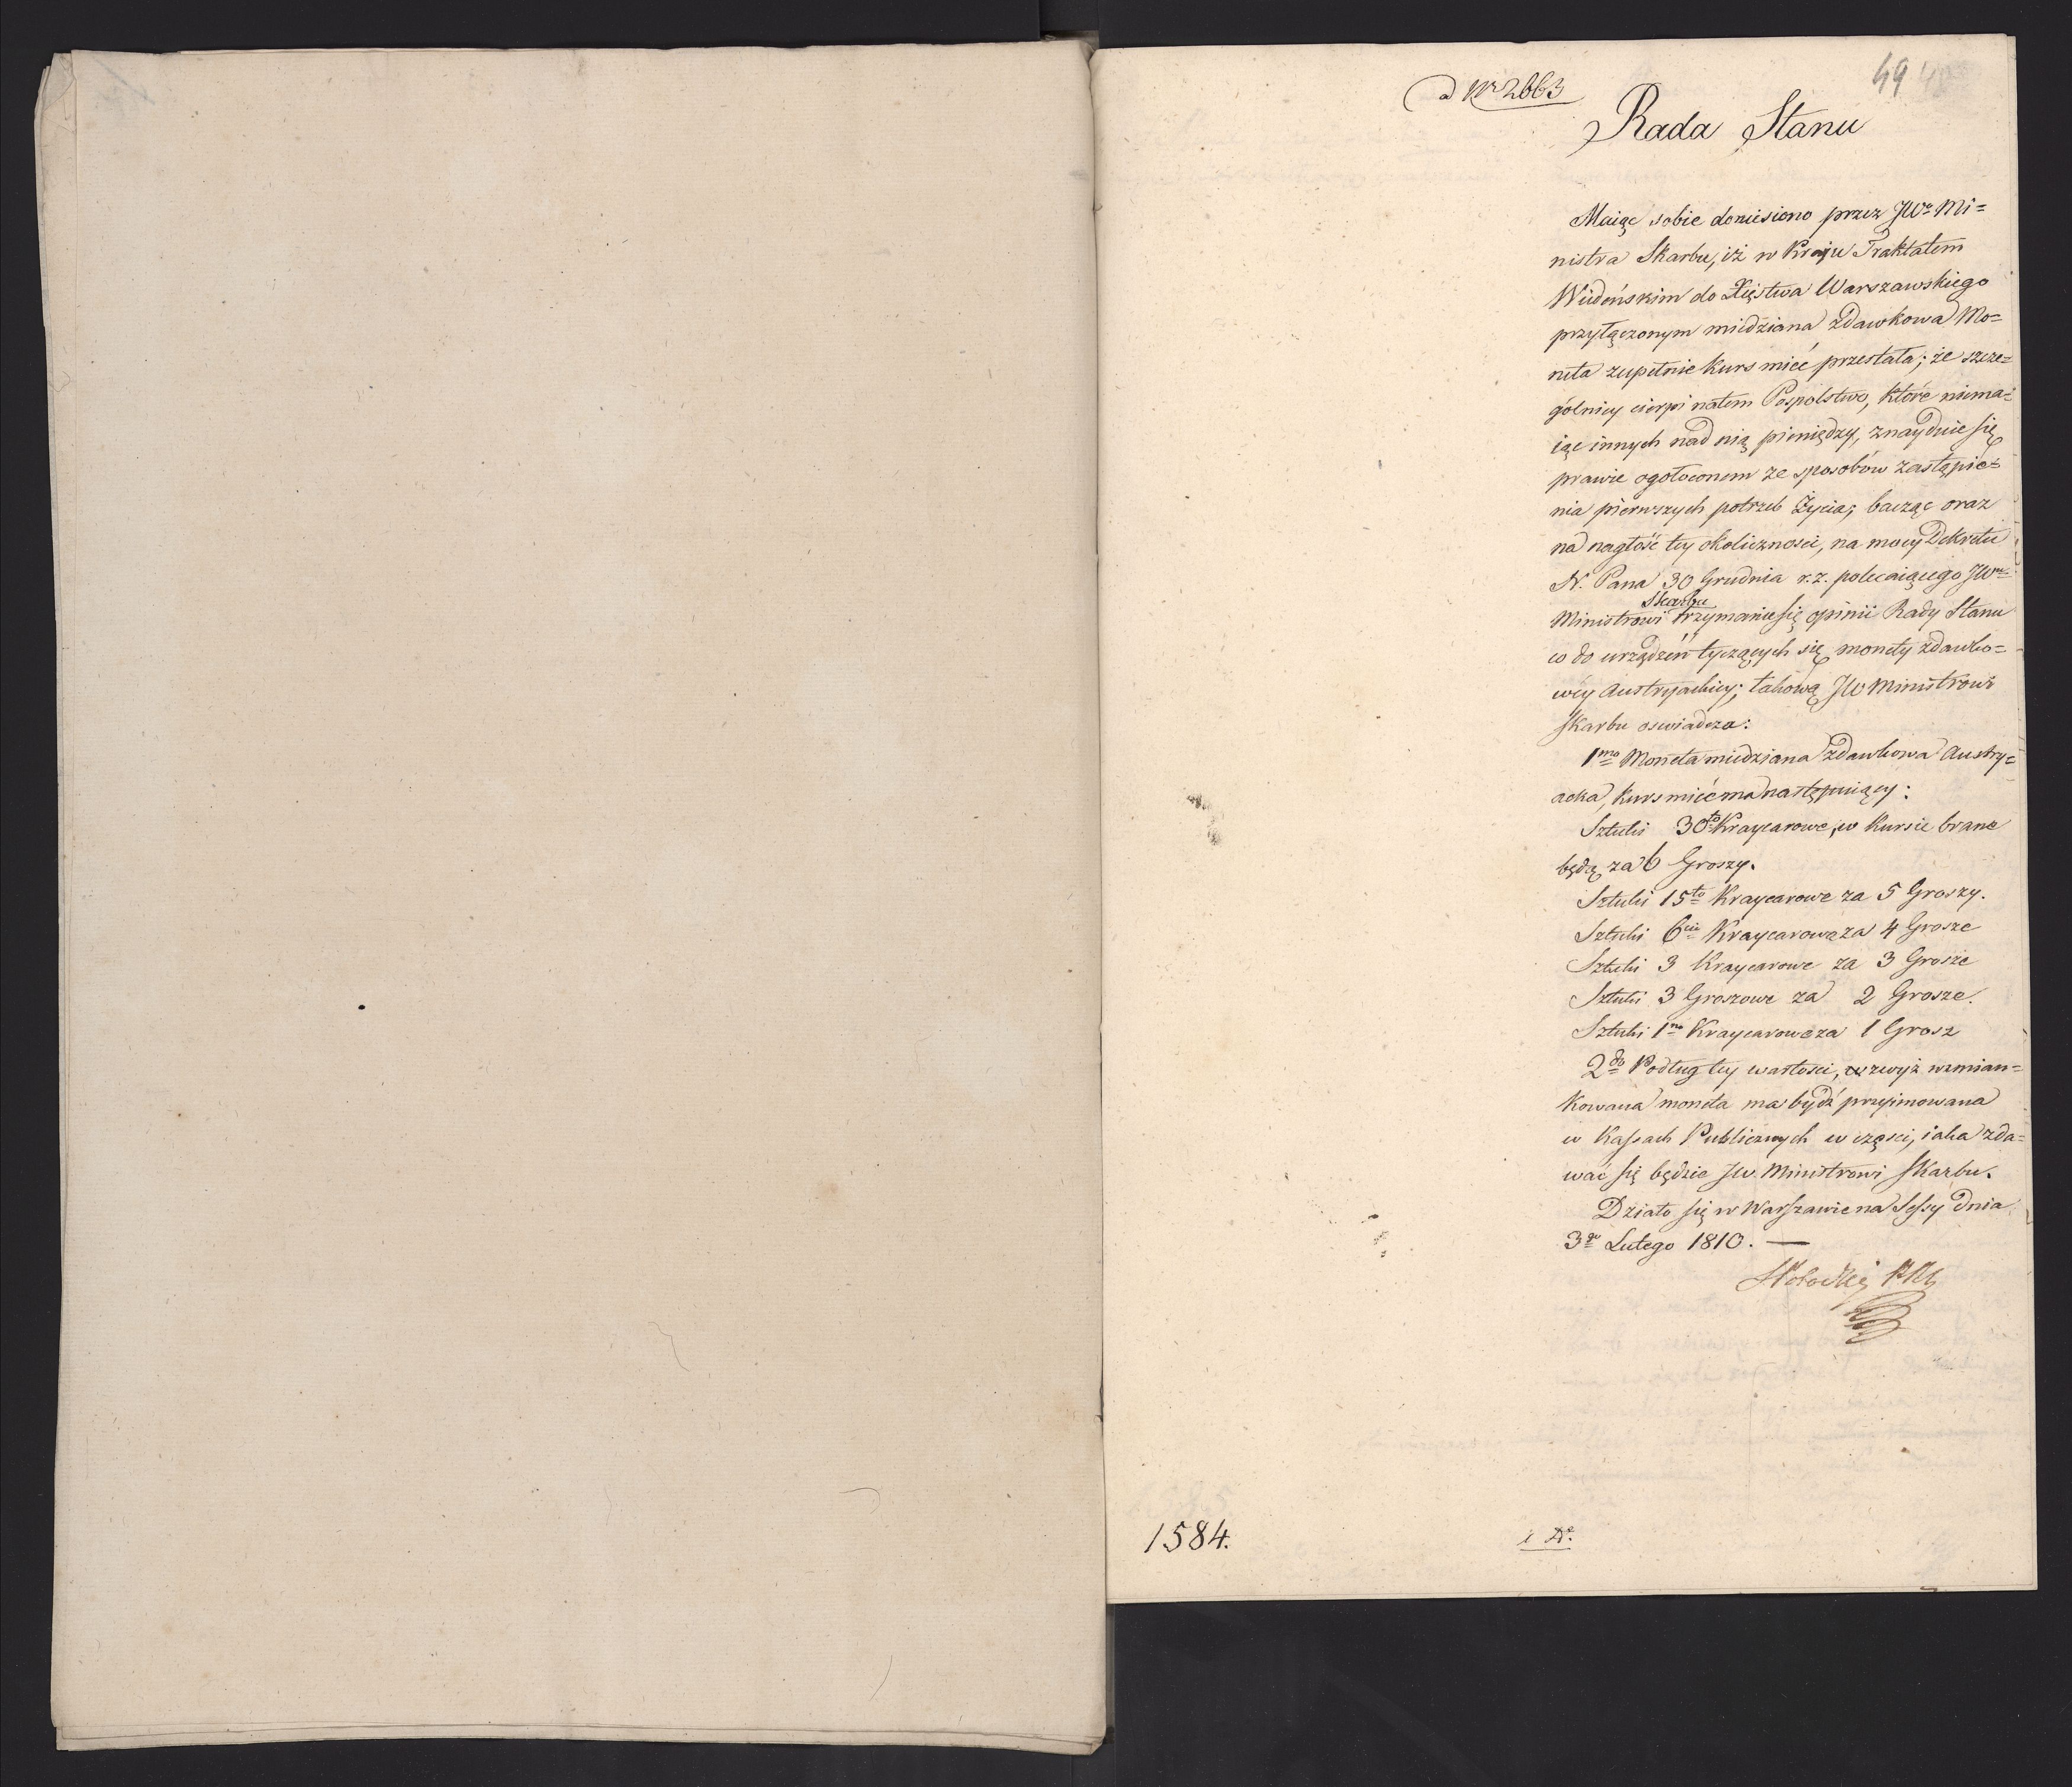 ad Nr 2663
49
Rada Stanu
Maiąc sobie doniesiono przez JWo Mi=
nistra Skarbu, iż w Kraju Traktatem
Wiedeńskim do Xięstwa Warszawskiego
przyłączonym miedziana zdawkowa Mo=
neta zupełnie kurs mieć przestała; że szcze=
gólniey cierpi natem Pospólstwo, które niema=
iąc innych nad nią pieniędzy, znayduie się
prawie ogołoconem ze sposobów zastąpie=
nia pierwszych potrzeb Życia; bacząc oraz
na nagłość tey okoliczności, na mocy Dekretu
N. Pana 30 Grudnia r. z. polecaiącego JWmu
Skarbu
Ministrowi trzymanie się opinii Rady Stanu
co do urządzeń tyczących się monety zdawko=
wéy Austryackiey; takową JW Ministrowi
Skarbu oświadcza:
1mo Moneta miedziana zdawkowa Austry=
acka, kurs mieć ma następuiący:
Sztuki 30to Kraycarowe, w kursie brane
będą za 6 Groszy.
Sztuki 15to Kraycarowe za 5 Groszy.
Sztuki 6cio Kraycarowe za 4 Grosze
Sztuki 3 Kraycarowe za 3 Grosze
Sztuki 3 Groszowe za 2 Grosze.
Sztuki 1no Kraycarowe za 1 Grosz
2do Podług tey wartości, wzwyż wzmian=
kowana moneta ma bydź przyimowana
w Kassach Publicznych w części, iaka zda=
wać się będzie JW. Ministrowi Skarbu.
Działo się w Warszawie na Sessy dnia
3go Lutego 1810. —
1584.